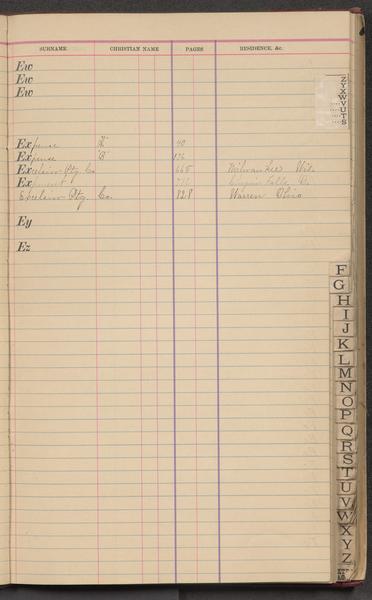 SURNAME CHRISTIAN NAME PAGES RESIDENCE, &c.
Ew
Ew
Ew
Expense "A" 40
Expense "B" 176
Excelsior Ptg. Co 665 Milwaukee Wis.
Ex Falls O.
Excelsior Ptg. Co. 828 Warren Ohio
Ey
Ez
Z
Y
X
W
V
U
T
S
F
G
H
I
J
K
L
M
N
O
P
Q
R
S
T
U
V
W
X
Y
Z